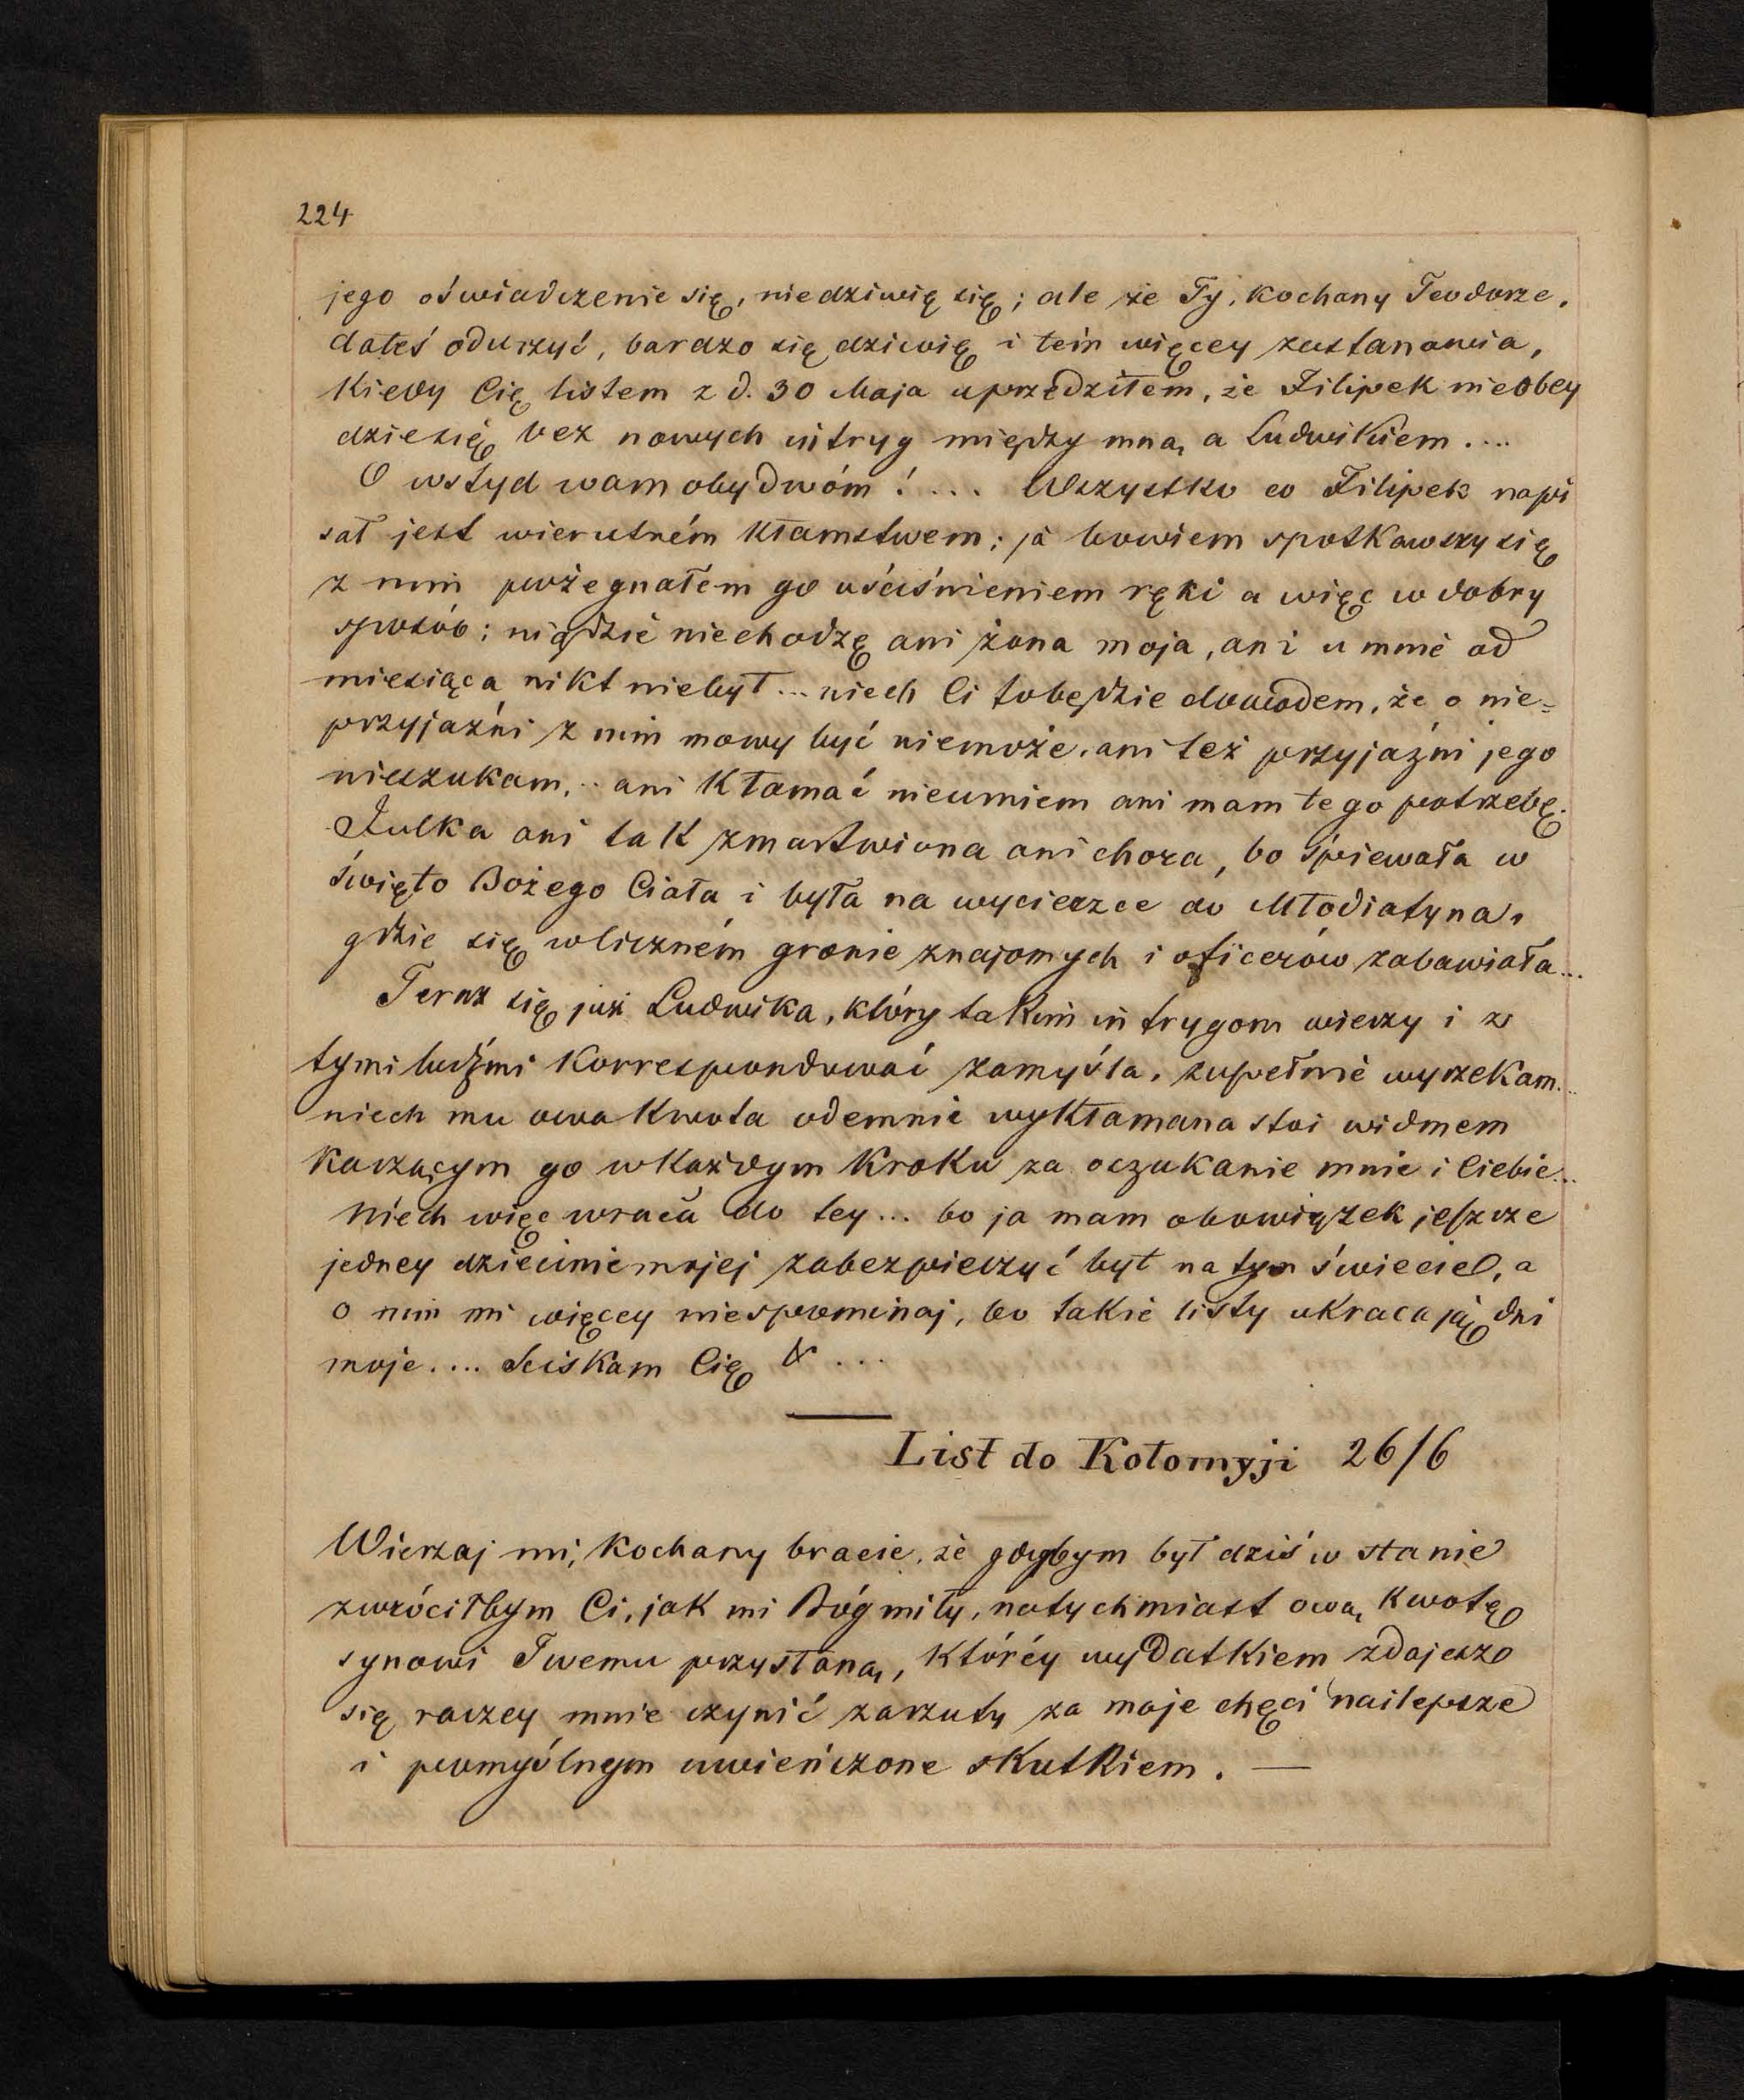 224
jego oświadczenie się, niedziwię się; ale że Ty, kochany Teodorze,
dałeś odurzyć, bardzo się dziwię i tém więcey zastanawia,
kiedy Cię listem z d. 30 Maja uprzedziłem, że Filipek nieobey
dziesię bez nowych intryg między mną a Ludwikiem....
O wstyd wam obydwóm!.... Wszystko co Filipek napi
sał jest wierutném kłamstwem; ja bowiem spotkawszy się
z nim pożegnałem go uściśnieniem ręki a więc w dobry
sposób; nigdzie niechodzę ani żona moja, ani u mnie od
miesiąca nikt niebył... niech Ci tobędzie dowodem, że o nie=
przyjaźni z nim mowy być niemoże, ani też przyjaźni jego
nieszukam,.. ani kłamać nieumiem ani mam tego potrzebę.
Julka ani tak zmartwiona ani chora, bo śpiewała w
święto Bożego Ciała i była na wycieczce do Młodiatyna,
gdzie się wliczném gronie znajomych i oficerów zabawiała...
Teraz się już Ludwika, który takim intrygom wierzy i z
tymi ludźmi korrespondować zamyśla, zupełnie wyrzekam...
niech mu owa kwota odemnie wykłamana stoi widmem
karzącym go wkażdym kroku za oszukanie mnie i Ciebie...
Niech więc wraca do tey... bo ja mam obowiązek jeszcze
jedney dziecinie mojej zabezpieczyć byt na tym świecie, a
o nim mi więcey niespominaj, bo takie listy ukracają dni
moje.... Sciskam Cię & ...
List do Kołomyji 26/6
Wierzaj mi, kochany bracie, że gdybym był dziś w stanie
zwróciłbym Ci, jak mi Bóg miły, natychmiast ową kwotę
synowi Twemu przysłaną, któréy wydatkiem zdajesz
się raczey mnie czynić zarzuty za moje chęci najlepsze
i pomyślnym uwieńczone skutkiem. —